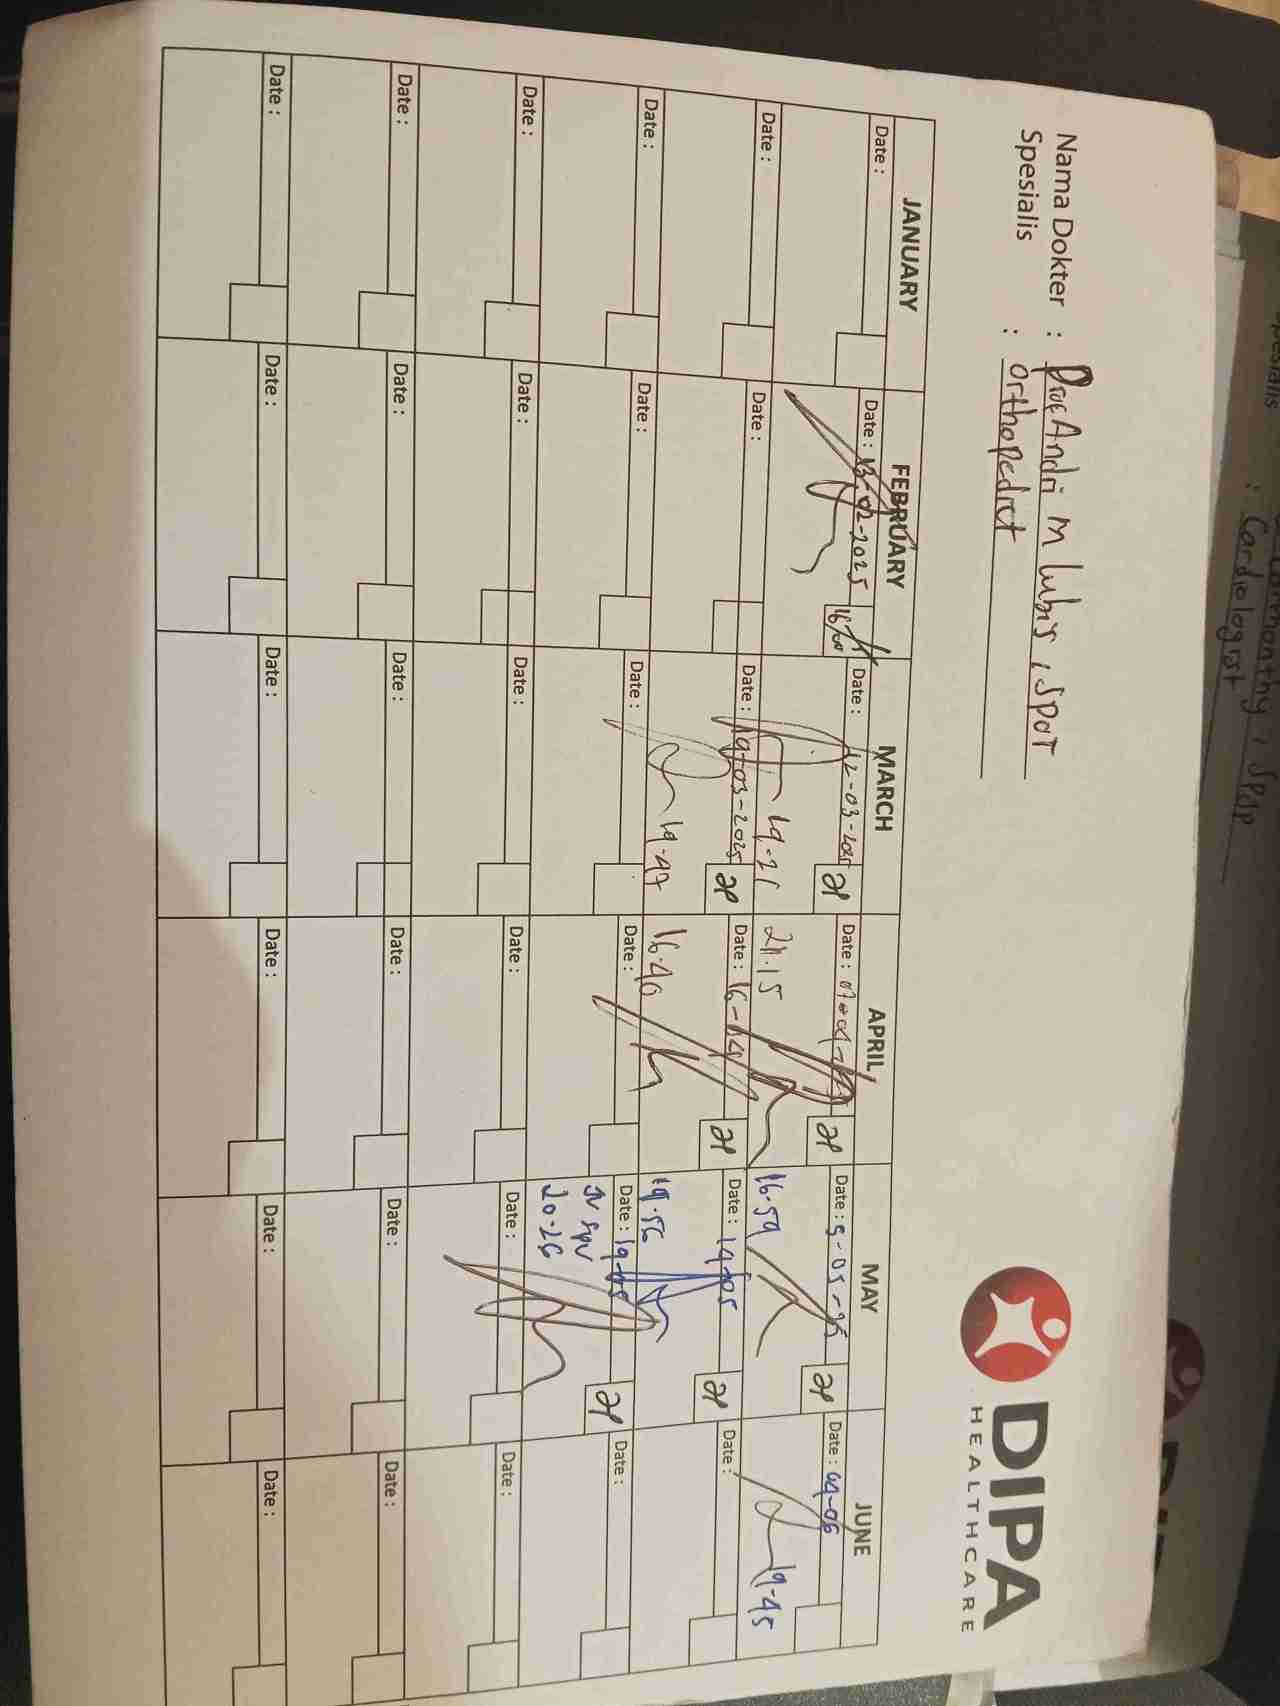 Nama Dokter : Prof Andri M Lubis, SpOT
Spesialis : Orthopedist
DIPA
HEALTHCARE
JANUARY FEBRUARY MARCH APRIL MAY JUNE
Date : Date : 13-02-2025 Date : 12-03-2025 Date : 07-04- Date : 5-05-25 Date : 04-06
19.21 21.15 16.59 19.45
Date : Date : Date : 19-03-2025 Date : 16-04 Date : 14-05 Date :
19.47 16.40 19.56
Date : Date : Date : Date : Date : 19-05 Date :
20.26
Date : Date : Date : Date : Date : Date :
Date : Date : Date : Date : Date : Date :
Date : Date : Date : Date : Date : Date :
Spesialis : Cardiologist